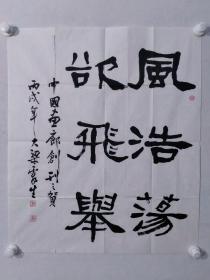 風浩蕩
欲飛舉
中國畫廊創刊之賀
丙戌年大梁雲生